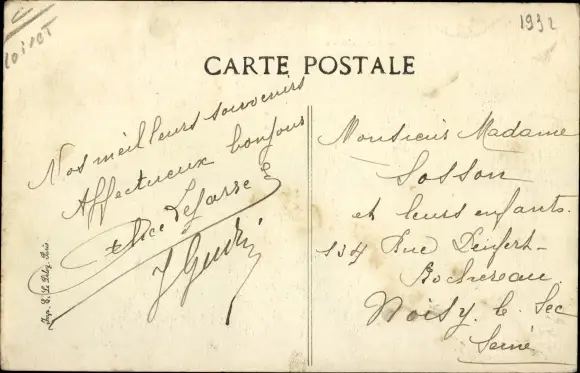 Loiret
1932
CARTE POSTALE
Nos meilleurs souvenirs
Affectueux bonjour
Alice
J
Imp. Paris
Monsieur Madame
Sosson
et leurs enfants
134 Rue Denfert-
Rochereau
Noisy-le-Sec
Seine